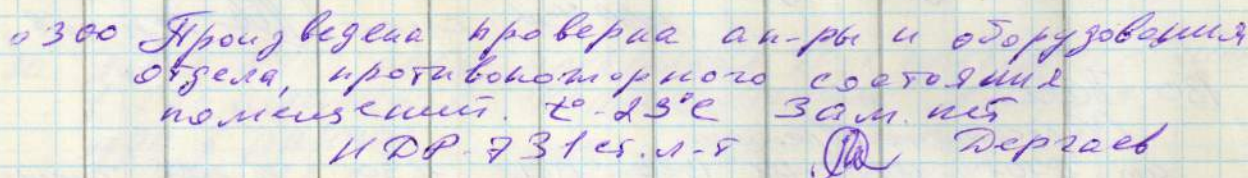 0300 Произведена проверка ап-ры и оборудования
отдела, противопожарного состояния
помещений. t°-23°С Зам. нет
НДР-731 ст. л-т Дергаев